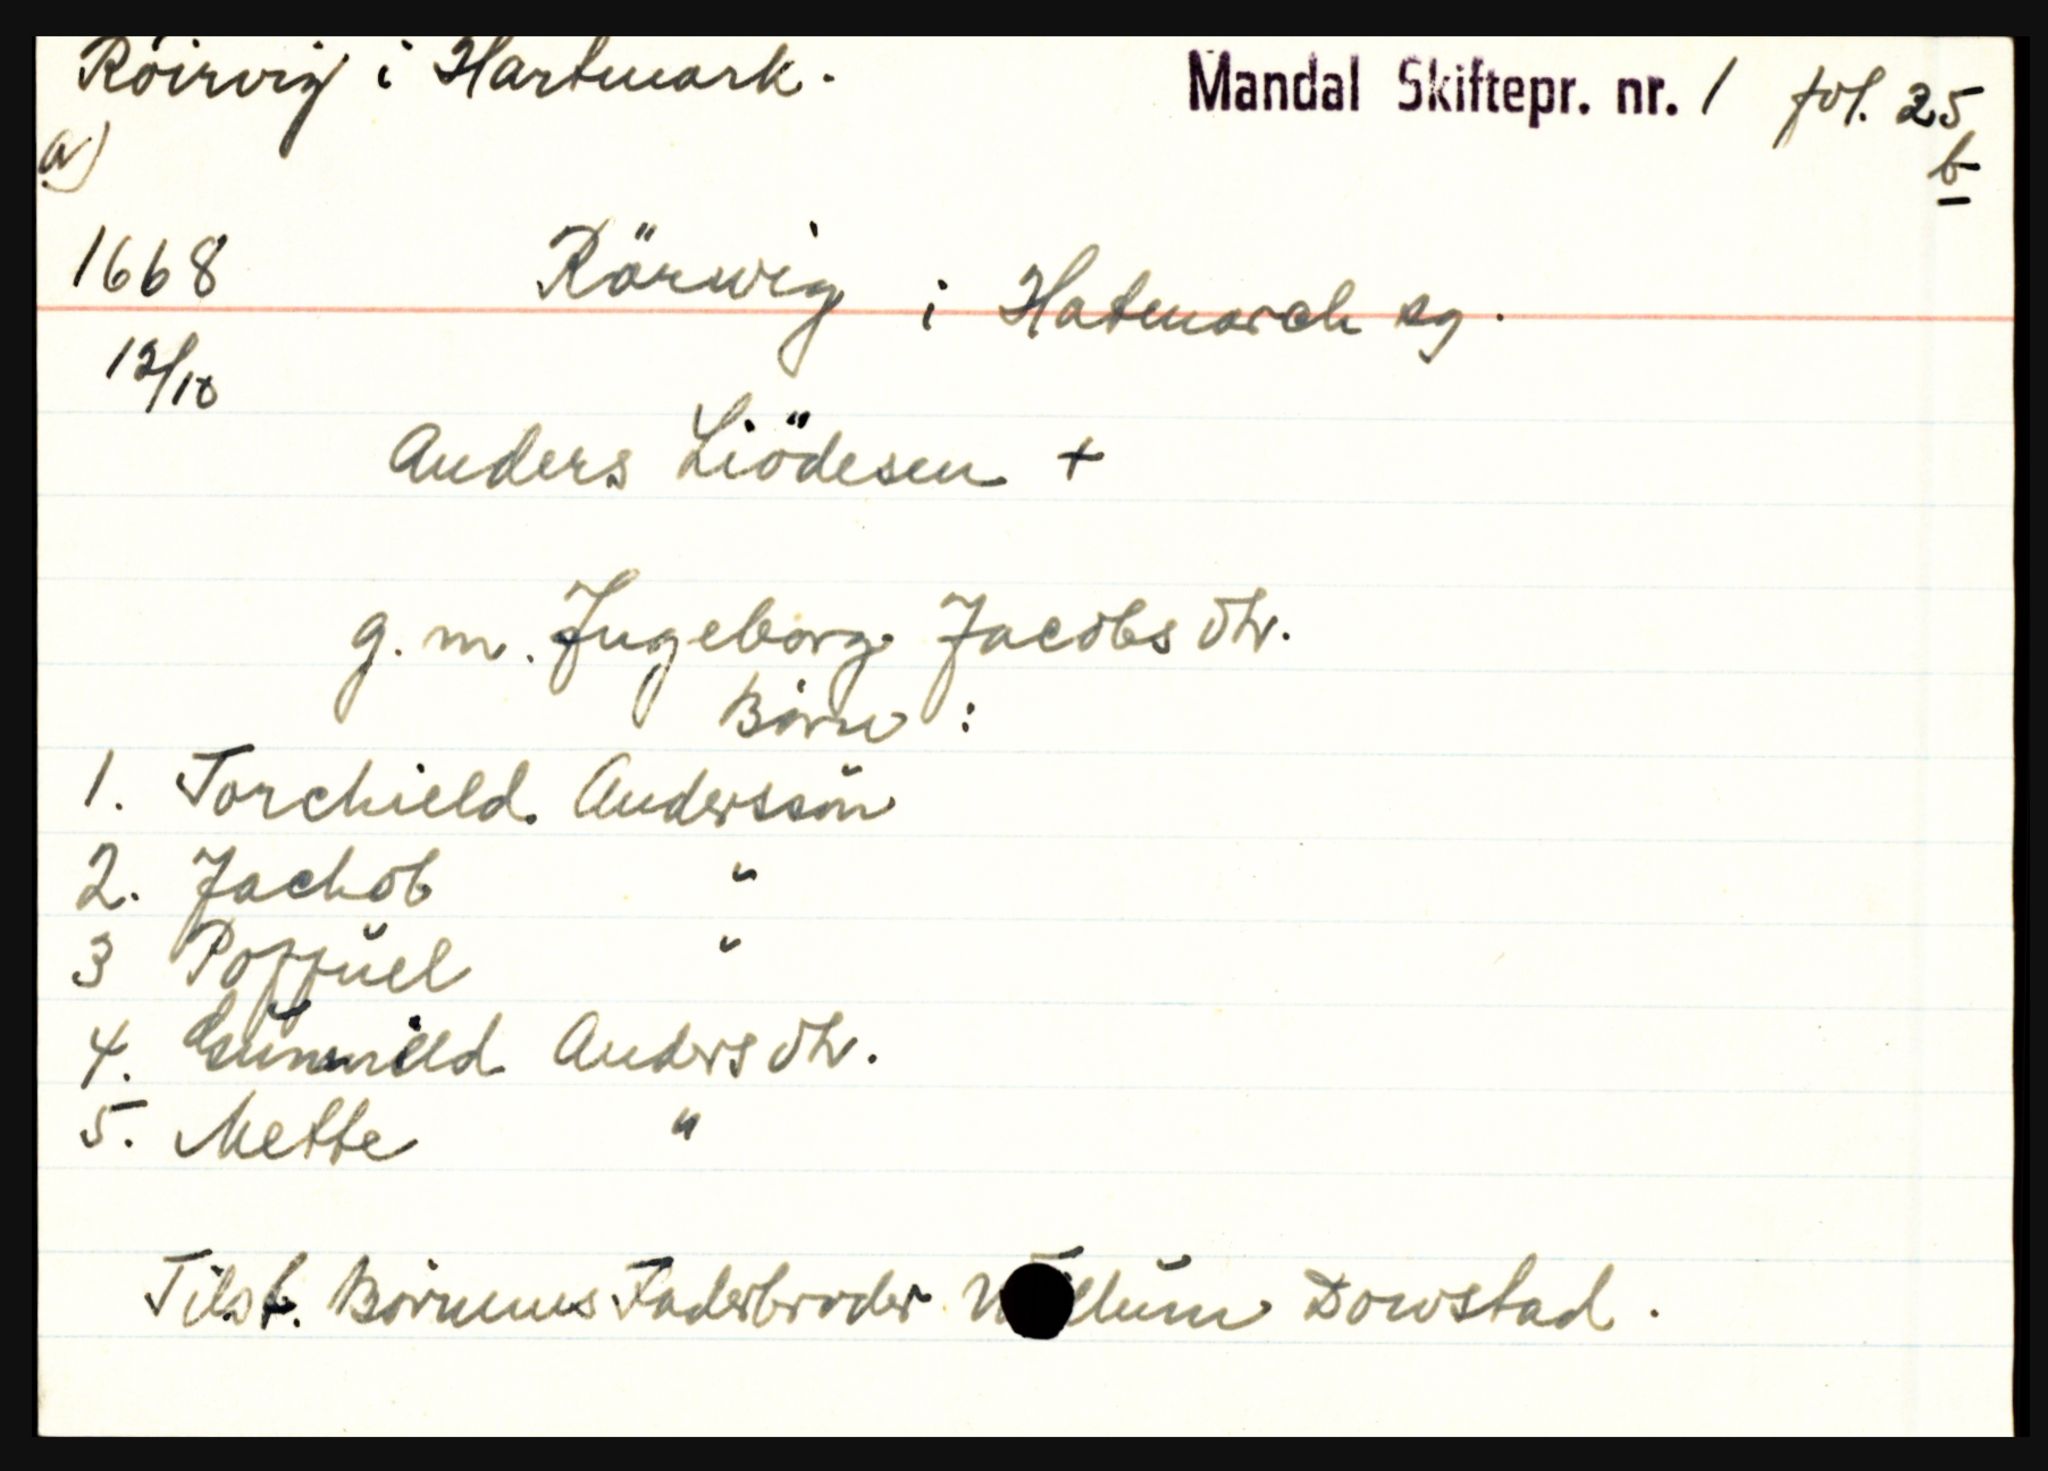 Röirvig i Hartmark.
Mandal Skiftepr. nr. 1 fol. 25
b
a)
1668
Rörwig i Hatmarch sg.
12/10
Anders Liödesen +
g. m. Ingeborg Jacobs dtr.
Börn :
1. Torchield Anderssön
2. Jachob "
3 Poffŭel "
4. Gŭnnild Anders dtr.
5. Mette "
Tilst. Börnenes Faderbroder Willŭm Dowstad.